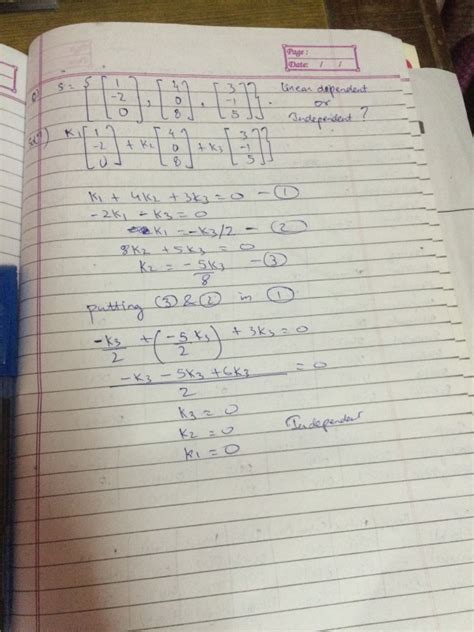 Page :
Date: / /
Q) S = { [1 -2 0], [4 0 8], [3 -1 5] }. Linear dependent or Independent ?
Solⁿ) K1 [1 -2 0] + K2 [4 0 8] + K3 [3 -1 5]
K1 + 4K2 + 3K3 = 0 — ①
-2K1 - K3 = 0
K1 = -K3/2 — ②
8K2 + 5K3 = 0
K2 = -5K3/8 — ③
putting ③ & ② in ①
-K3/2 + (-5K3/2) + 3K3 = 0
(-K3 - 5K3 + 6K3)/2 = 0
K3 = 0
K2 = 0 Independent
K1 = 0